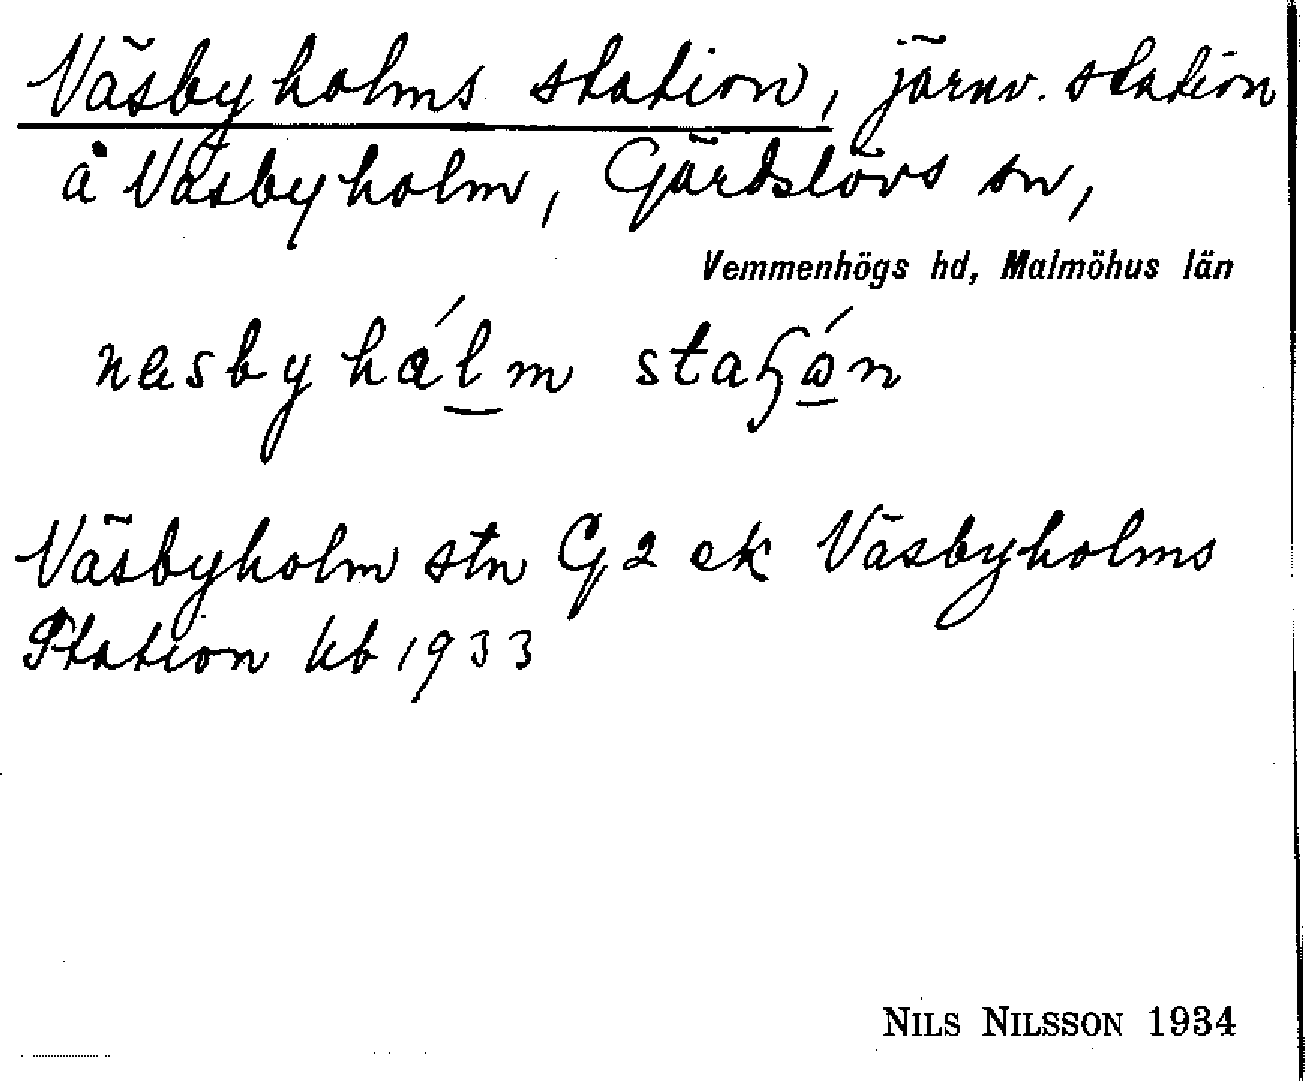 Väsbyholms station, järnv. station
å Väsbyholm, Gärdslövs sn,
Vemmenhögs hd, Malmöhus län
næsbyhálm staɧón
Väsbyholm stn G 2 ek Väsbyholms
Station kb 1933
NILS NILSSON 1934